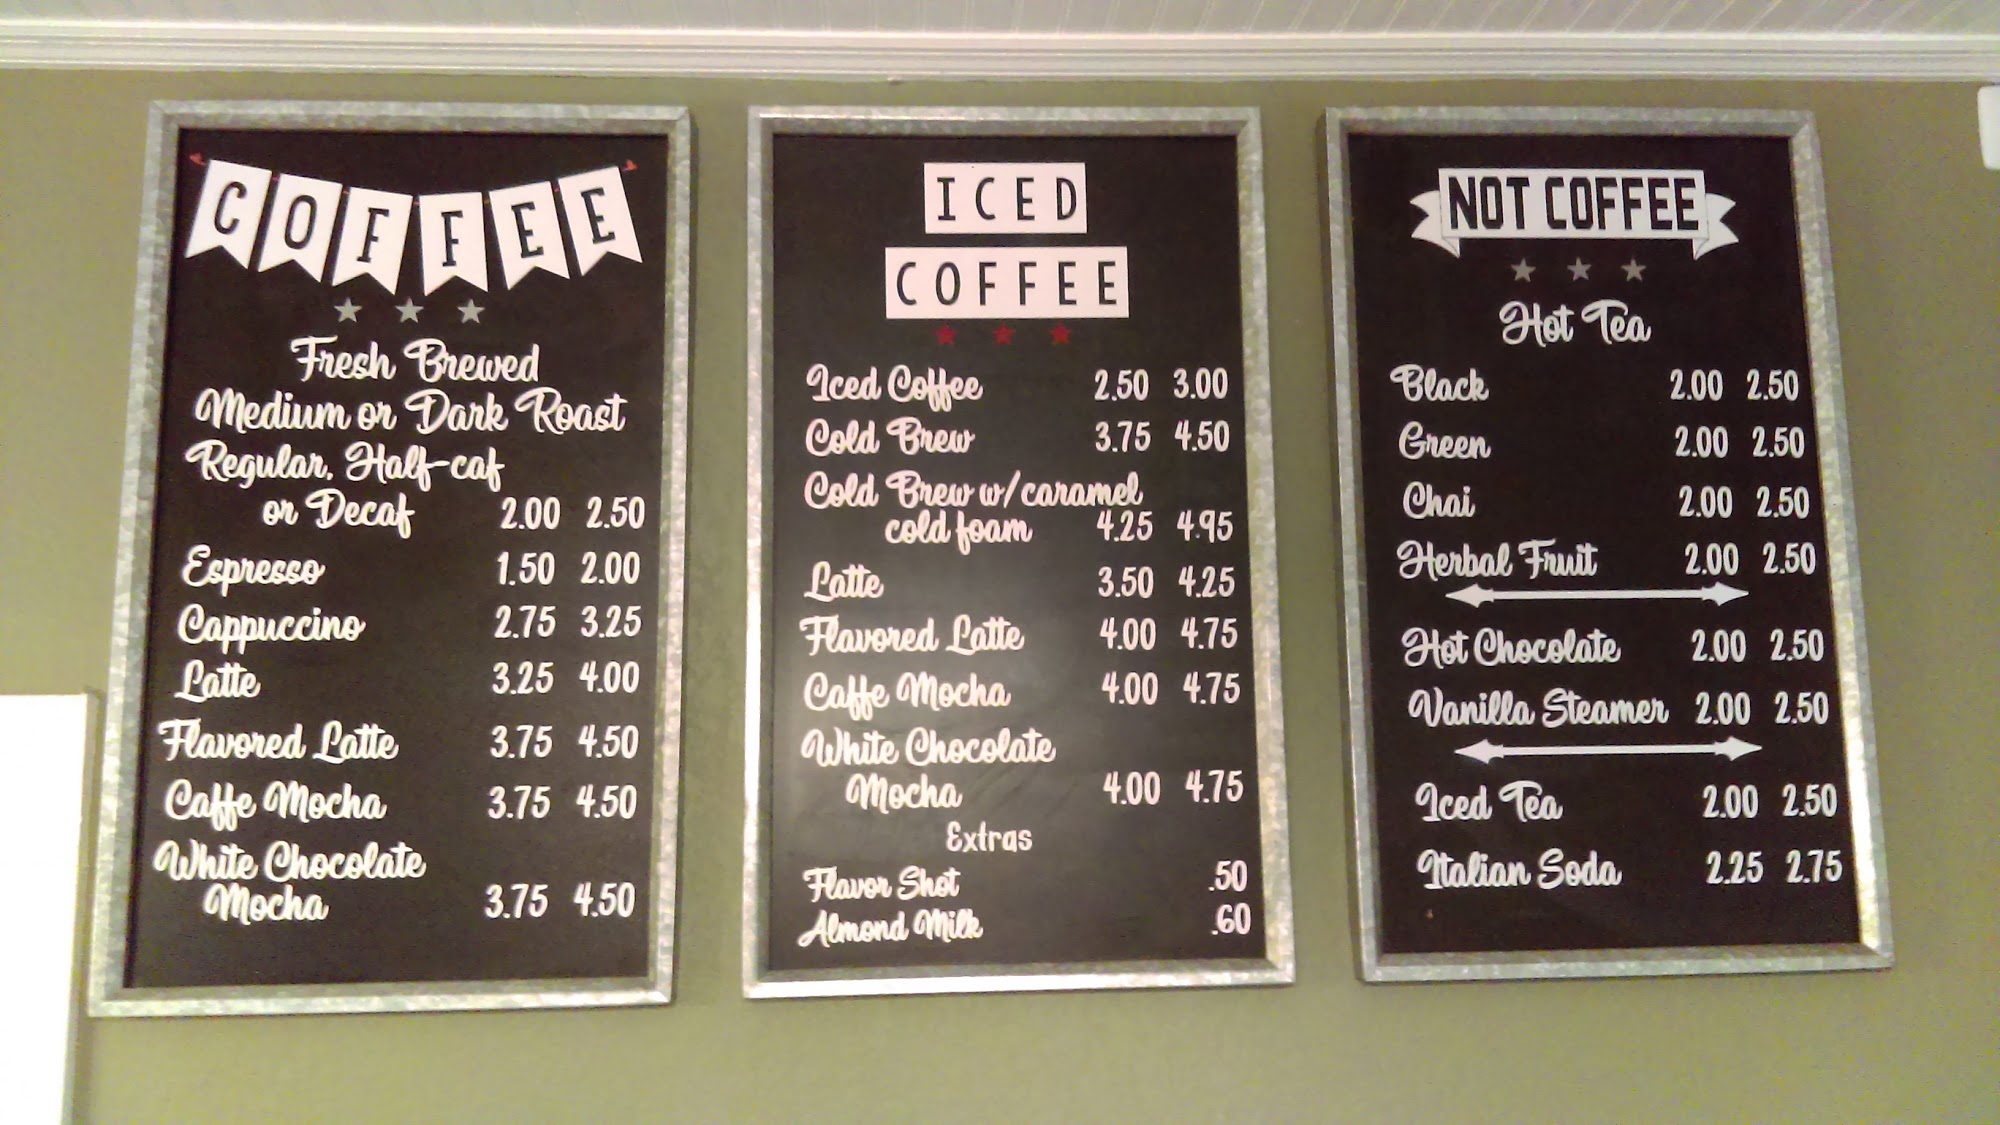 COFFEE
Fresh Brewed
Medium or Dark Roast
Regular, Half-caf
or Decaf 2.00 2.50
Espresso 1.50 2.00
Cappuccino 2.75 3.25
Latte 3.25 4.00
Flavored Latte 3.75 4.50
Caffe Mocha 3.75 4.50
White Chocolate
Mocha 3.75 4.50
ICED
COFFEE
Iced Coffee 2.50 3.00
Cold Brew 3.75 4.50
Cold Brew w/caramel
cold foam 4.25 4.95
Latte 3.50 4.25
Flavored Latte 4.00 4.75
Caffe Mocha 4.00 4.75
White Chocolate
Mocha 4.00 4.75
Extras
Flavor Shot .50
Almond Milk .60
NOT COFFEE
Hot Tea
Black 2.00 2.50
Green 2.00 2.50
Chai 2.00 2.50
Herbal Fruit 2.00 2.50
Hot Chocolate 2.00 2.50
Vanilla Steamer 2.00 2.50
Iced Tea 2.00 2.50
Italian Soda 2.25 2.75